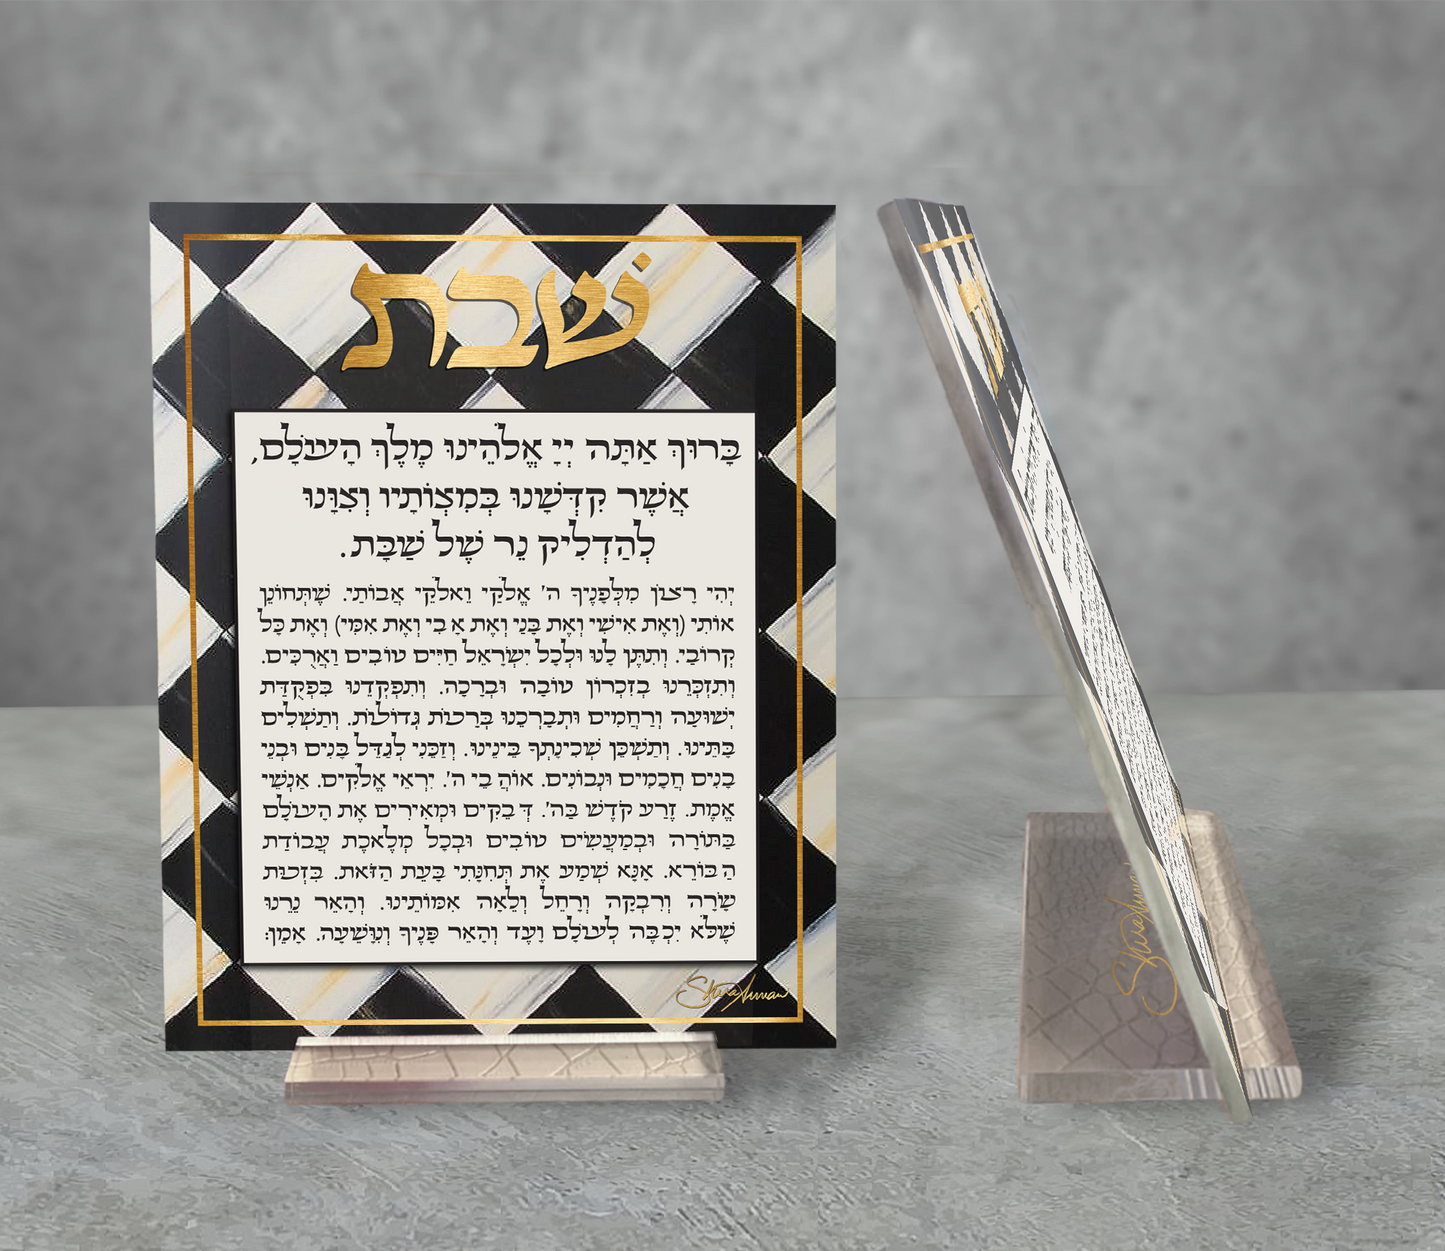 שבת
בָּרוּךְ אַתָּה יְיָ אֱלֹהֵינוּ מֶלֶךְ הָעוֹלָם,
אֲשֶׁר קִדְּשָׁנוּ בְּמִצְוֹתָיו וְצִוָּנוּ
לְהַדְלִיק נֵר שֶׁל שַׁבָּת.
יְהִי רָצוֹן מִלְּפָנֶיךָ ה' אֱלֹקַי וֵאלֹקֵי אֲבוֹתַי. שֶׁתְּחוֹנֵן
אוֹתִי (וְאֶת אִישִׁי וְאֶת בָּנַי וְאֶת אָבִי וְאֶת אִמִּי) וְאֶת כָּל
קְרוֹבַי. וְתִתֵּן לָנוּ וּלְכָל יִשְׂרָאֵל חַיִּים טוֹבִים וַאֲרֻכִּים.
וְתִזְכְּרֵנוּ בְּזִכְרוֹן טוֹבָה וּבְרָכָה. וְתִפְקְדֵנוּ בִּפְקֻדַּת
יְשׁוּעָה וְרַחֲמִים וּתְבָרְכֵנוּ בְּרָכוֹת גְּדוֹלוֹת. וְתַשְׁלִים
בָּתֵּינוּ. וְתַשְׁכֵּן שְׁכִינָתְךָ בֵּינֵינוּ. וְזַכֵּנִי לְגַדֵּל בָּנִים וּבְנֵי
בָנִים חֲכָמִים וּנְבוֹנִים. אוֹהֲבֵי ה'. יִרְאֵי אֱלֹקִים. אַנְשֵׁי
אֱמֶת. זֶרַע קֹדֶשׁ בַּה'. דְּבֵקִים וּמְאִירִים אֶת הָעוֹלָם
בַּתּוֹרָה וּבְמַעֲשִׂים טוֹבִים וּבְכָל מְלֶאכֶת עֲבוֹדַת
הַבּוֹרֵא. אָנָּא שְׁמַע אֶת תְּחִנָּתִי בָּעֵת הַזֹּאת. בִּזְכוּת
שָׂרָה וְרִבְקָה וְרָחֵל וְלֵאָה אִמּוֹתֵינוּ. וְהָאֵר נֵרֵנוּ
שֶׁלֹּא יִכְבֶּה לְעוֹלָם וָעֶד וְהָאֵר פָּנֶיךָ וְנִוָּשֵׁעָה. אָמֵן: